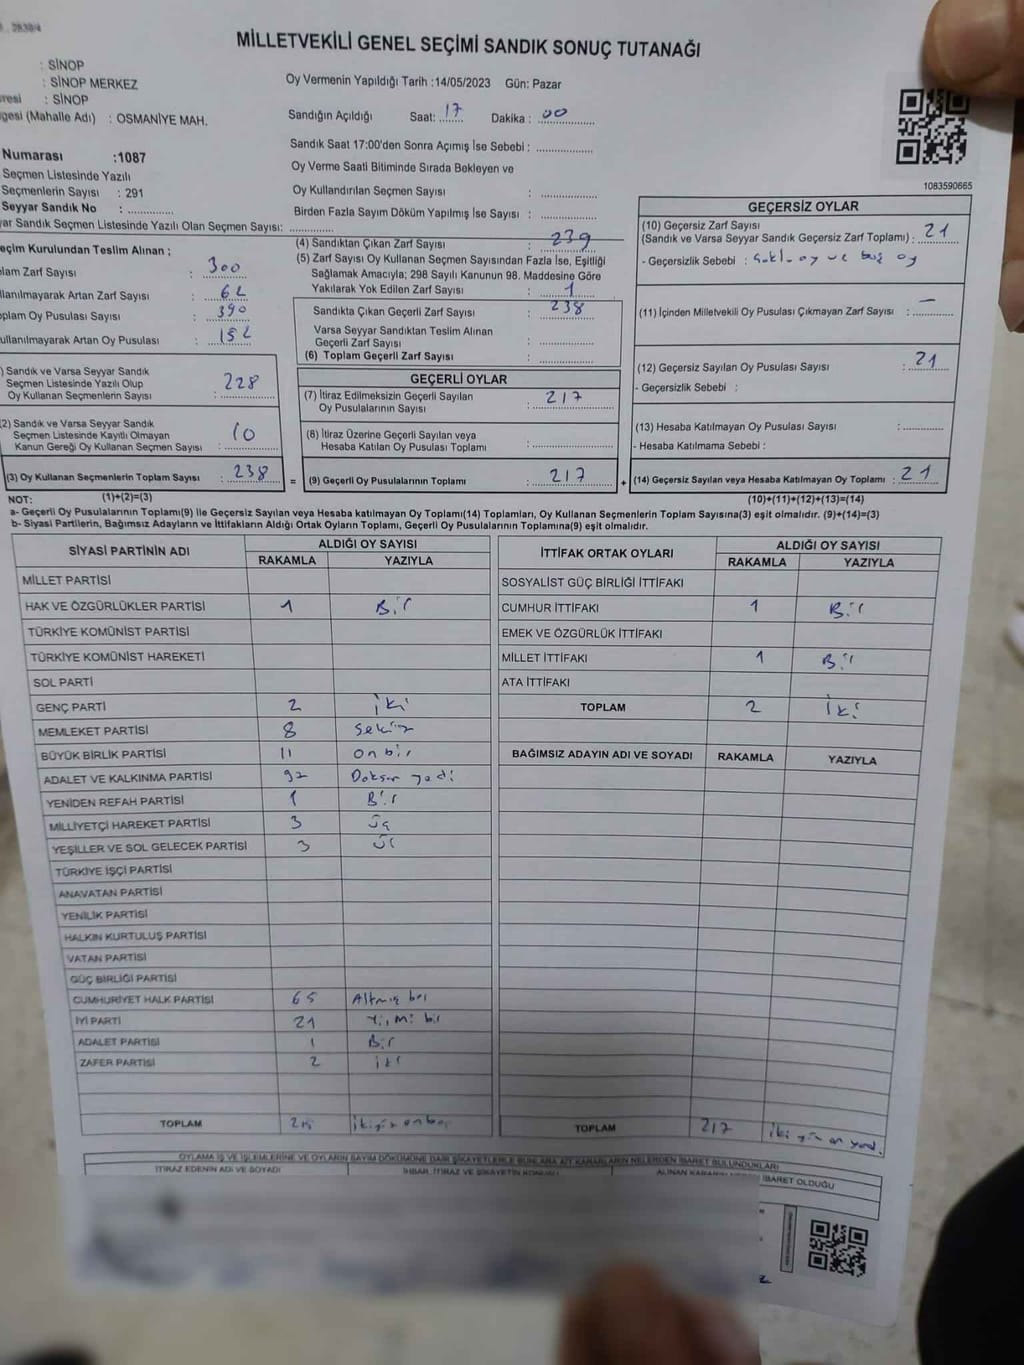 MİLLETVEKİLİ GENEL SEÇİMİ SANDIK SONUÇ TUTANAĞI
: SİNOP
: SİNOP MERKEZ
: SİNOP
(Mahalle Adı) : OSMANİYE MAH.
Numarası :1087
Seçmen Listesinde Yazılı
Seçmenlerin Sayısı : 291
Seyyar Sandık No :
Sandık Seçmen Listesinde Yazılı Olan Seçmen Sayısı:
Oy Vermenin Yapıldığı Tarih :14/05/2023 Gün: Pazar
Sandığın Açıldığı Saat: 17 Dakika : 00
Sandık Saat 17:00'den Sonra Açımış İse Sebebi :
Oy Verme Saati Bitiminde Sırada Bekleyen ve
Oy Kullandırılan Seçmen Sayısı :
Birden Fazla Sayım Döküm Yapılmış İse Sayısı :
1083590665
Kurulundan Teslim Alınan ;
Zarf Sayısı : 300
Artan Zarf Sayısı : 62
Oy Pusulası Sayısı : 390
Artan Oy Pusulası : 152
Sandık ve Varsa Seyyar Sandık
Seçmen Listesinde Yazılı Olup
Oy Kullanan Seçmenlerin Sayısı : 228
(2) Sandık ve Varsa Seyyar Sandık
Seçmen Listesinde Kayıtlı Olmayan
Kanun Gereği Oy Kullanan Seçmen Sayısı : 10
(3) Oy Kullanan Seçmenlerin Toplam Sayısı : 238
(4) Sandıktan Çıkan Zarf Sayısı : 239
(5) Zarf Sayısı Oy Kullanan Seçmen Sayısından Fazla İse, Eşitliği
Sağlamak Amacıyla; 298 Sayılı Kanunun 98. Maddesine Göre
Yakılarak Yok Edilen Zarf Sayısı : 1
Sandıkta Çıkan Geçerli Zarf Sayısı : 238
Varsa Seyyar Sandıktan Teslim Alınan
Geçerli Zarf Sayısı :
(6) Toplam Geçerli Zarf Sayısı :
GEÇERLİ OYLAR
(7) İtiraz Edilmeksizin Geçerli Sayılan
Oy Pusulalarının Sayısı : 217
(8) İtiraz Üzerine Geçerli Sayılan veya
Hesaba Katılan Oy Pusulası Toplamı :
= (9) Geçerli Oy Pusulalarının Toplamı : 217
GEÇERSİZ OYLAR
(10) Geçersiz Zarf Sayısı
(Sandık ve Varsa Seyyar Sandık Geçersiz Zarf Toplamı) : 21
- Geçersizlik Sebebi : oy ve boş oy
(11) İçinden Milletvekili Oy Pusulası Çıkmayan Zarf Sayısı : —
(12) Geçersiz Sayılan Oy Pusulası Sayısı : 21
- Geçersizlik Sebebi :
(13) Hesaba Katılmayan Oy Pusulası Sayısı :
- Hesaba Katılmama Sebebi :
+ (14) Geçersiz Sayılan veya Hesaba Katılmayan Oy Toplamı : 21
NOT: (1)+(2)=(3)
(10)+(11)+(12)+(13)=(14)
a- Geçerli Oy Pusulalarının Toplamı(9) ile Geçersiz Sayılan veya Hesaba katılmayan Oy Toplamı(14) Toplamları, Oy Kullanan Seçmenlerin Toplam Sayısına(3) eşit olmalıdır. (9)+(14)=(3)
b- Siyasi Partilerin, Bağımsız Adayların ve İttifakların Aldığı Ortak Oyların Toplamı, Geçerli Oy Pusulalarının Toplamına(9) eşit olmalıdır.
SİYASİ PARTİNİN ADI
ALDIĞI OY SAYISI
RAKAMLA YAZIYLA
MİLLET PARTİSİ
HAK VE ÖZGÜRLÜKLER PARTİSİ 1 Bir
TÜRKİYE KOMÜNİST PARTİSİ
TÜRKİYE KOMÜNİST HAREKETİ
SOL PARTİ
GENÇ PARTİ 2 İki
MEMLEKET PARTİSİ 8 Sekiz
BÜYÜK BİRLİK PARTİSİ 11 on bir
ADALET VE KALKINMA PARTİSİ 97 Doksan yedi
YENİDEN REFAH PARTİSİ 1 Bir
MİLLİYETÇİ HAREKET PARTİSİ 3 üç
YEŞİLLER VE SOL GELECEK PARTİSİ 3 üç
TÜRKİYE İŞÇİ PARTİSİ
ANAVATAN PARTİSİ
YENİLİK PARTİSİ
HALKIN KURTULUŞ PARTİSİ
VATAN PARTİSİ
GÜÇ BİRLİĞİ PARTİSİ
CUMHURİYET HALK PARTİSİ 65 Altmış beş
İYİ PARTİ 21 Yirmi bir
ADALET PARTİSİ 1 Bir
ZAFER PARTİSİ 2 iki
TOPLAM 215 iki yüz on beş
İTTİFAK ORTAK OYLARI
ALDIĞI OY SAYISI
RAKAMLA YAZIYLA
SOSYALİST GÜÇ BİRLİĞİ İTTİFAKI
CUMHUR İTTİFAKI 1 Bir
EMEK VE ÖZGÜRLÜK İTTİFAKI
MİLLET İTTİFAKI 1 Bir
ATA İTTİFAKI
TOPLAM 2 İki
BAĞIMSIZ ADAYIN ADI VE SOYADI RAKAMLA YAZIYLA
TOPLAM 217 iki yüz on yedi
OYLAMA İŞ VE İŞLEMLERİNE VE OYLARIN SAYIM DÖKÜMÜNE DAİR ŞİKAYETLERLE BUNLARA AİT KARARLARIN NELERDEN İBARET BULUNDUKLARI
İTİRAZ EDENİN ADI VE SOYADI
İHBAR, İTİRAZ VE ŞİKAYETİN KONUSU
İBARET OLDUĞU